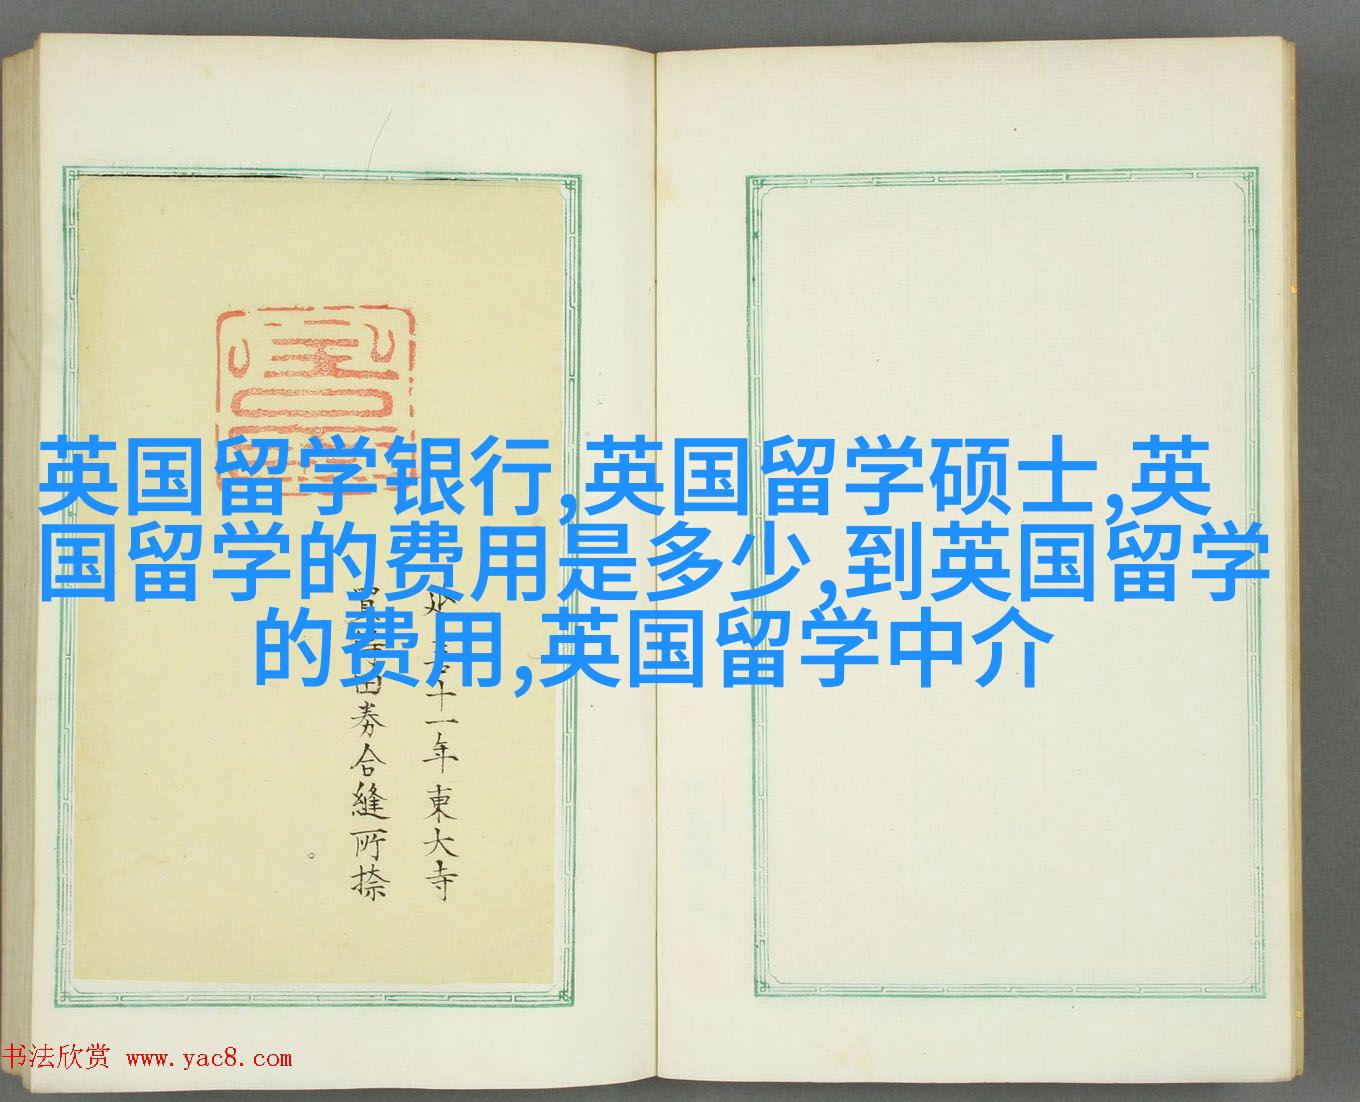 英国留学银行,英国留学硕士,英
国留学的费用是多少,到英国留学
的费用,英国留学中介
十一年東大寺
田券合縫所捺
书法欣赏 www.yac8.com